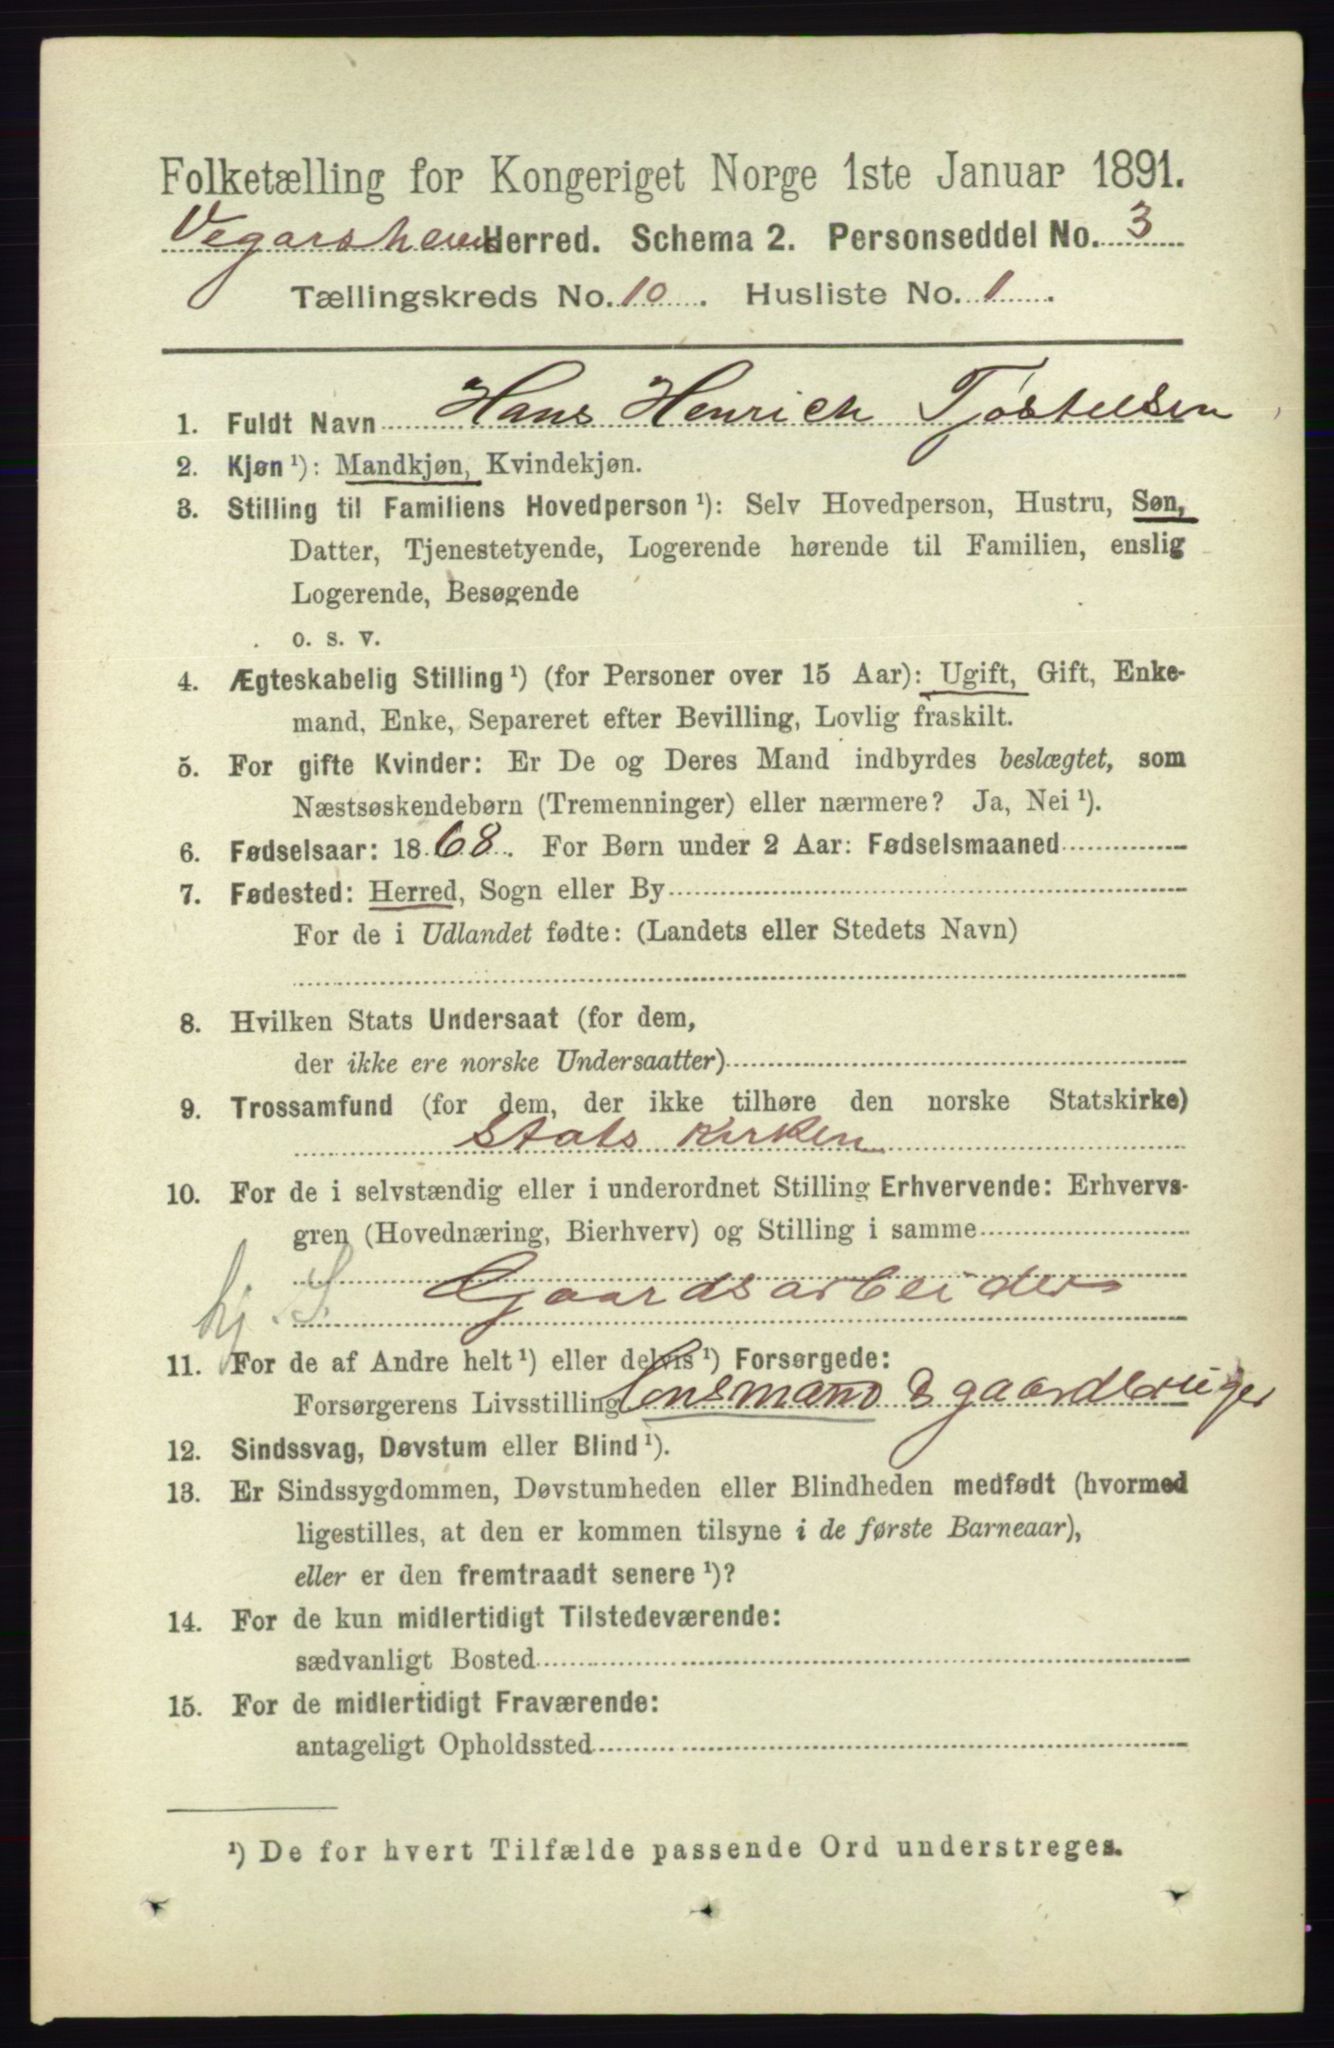 Folketælling for Kongeriget Norge 1ste Januar 1891.
Vegarsheien Herred. Schema 2. Personseddel No. 3
Tællingskreds No. 10. Husliste No. 1.
1. Fuldt Navn Hans Henrich Tjøstelsen
2. Kjøn ¹): Mandkjøn, Kvindekjøn.
3. Stilling til Familiens Hovedperson ¹): Selv Hovedperson, Hustru, Søn,
Datter, Tjenestetyende, Logerende hørende til Familien, enslig
Logerende, Besøgende
o. s. v.
4. Ægteskabelig Stilling ¹) (for Personer over 15 Aar): Ugift, Gift, Enke-
mand, Enke, Separeret efter Bevilling, Lovlig fraskilt.
5. For gifte Kvinder: Er De og Deres Mand indbyrdes beslægtet, som
Næstsøskendebørn (Tremenninger) eller nærmere? Ja, Nei ¹).
6. Fødselsaar: 1868. For Børn under 2 Aar: Fødselsmaaned
7. Fødested: Herred, Sogn eller By
For de i Udlandet fødte: (Landets eller Stedets Navn)
8. Hvilken Stats Undersaat (for dem,
der ikke ere norske Undersaatter)
9. Trossamfund (for dem, der ikke tilhøre den norske Statskirke)
Stats kirken
10. For de i selvstændig eller i underordnet Stilling Erhvervende: Erhvervs-
gren (Hovednæring, Bierhverv) og Stilling i samme
hj. S. Gaardsarbeider
11. For de af Andre helt ¹) eller delvis ¹) Forsørgede:
Forsørgerens Livsstilling Lensmand & gaardbruger
12. Sindssvag, Døvstum eller Blind ¹).
13. Er Sindssygdommen, Døvstumheden eller Blindheden medfødt (hvormed
ligestilles, at den er kommen tilsyne i de første Barneaar),
eller er den fremtraadt senere ¹)?
14. For de kun midlertidigt Tilstedeværende:
sædvanligt Bosted
15. For de midlertidigt Fraværende:
antageligt Opholdssted
¹) De for hvert Tilfælde passende Ord understreges.